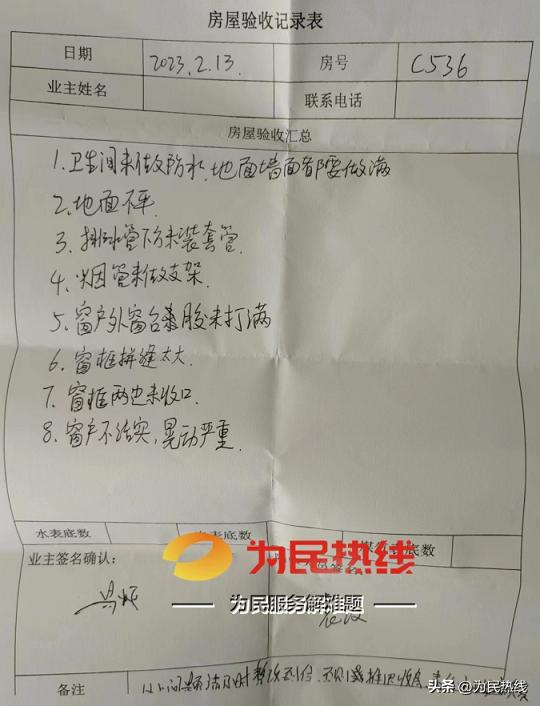 房屋验收记录表
日期 2023.2.13. 房号 C536
业主姓名 联系电话
房屋验收汇总
1、卫生间未做防水、地面墙面都要做满
2、地面不平
3、排水管下方未装套管
4、火因管未做支架
5、窗户外窗台 胶未打满
6、窗框拼缝太大
7、窗框两边未收口
8、窗户不结实，晃动严重
水表底数 底数
业主签名确认：
为民热线
为民服务解难题
备注 以上问题请及时整改到位
头条 @为民热线